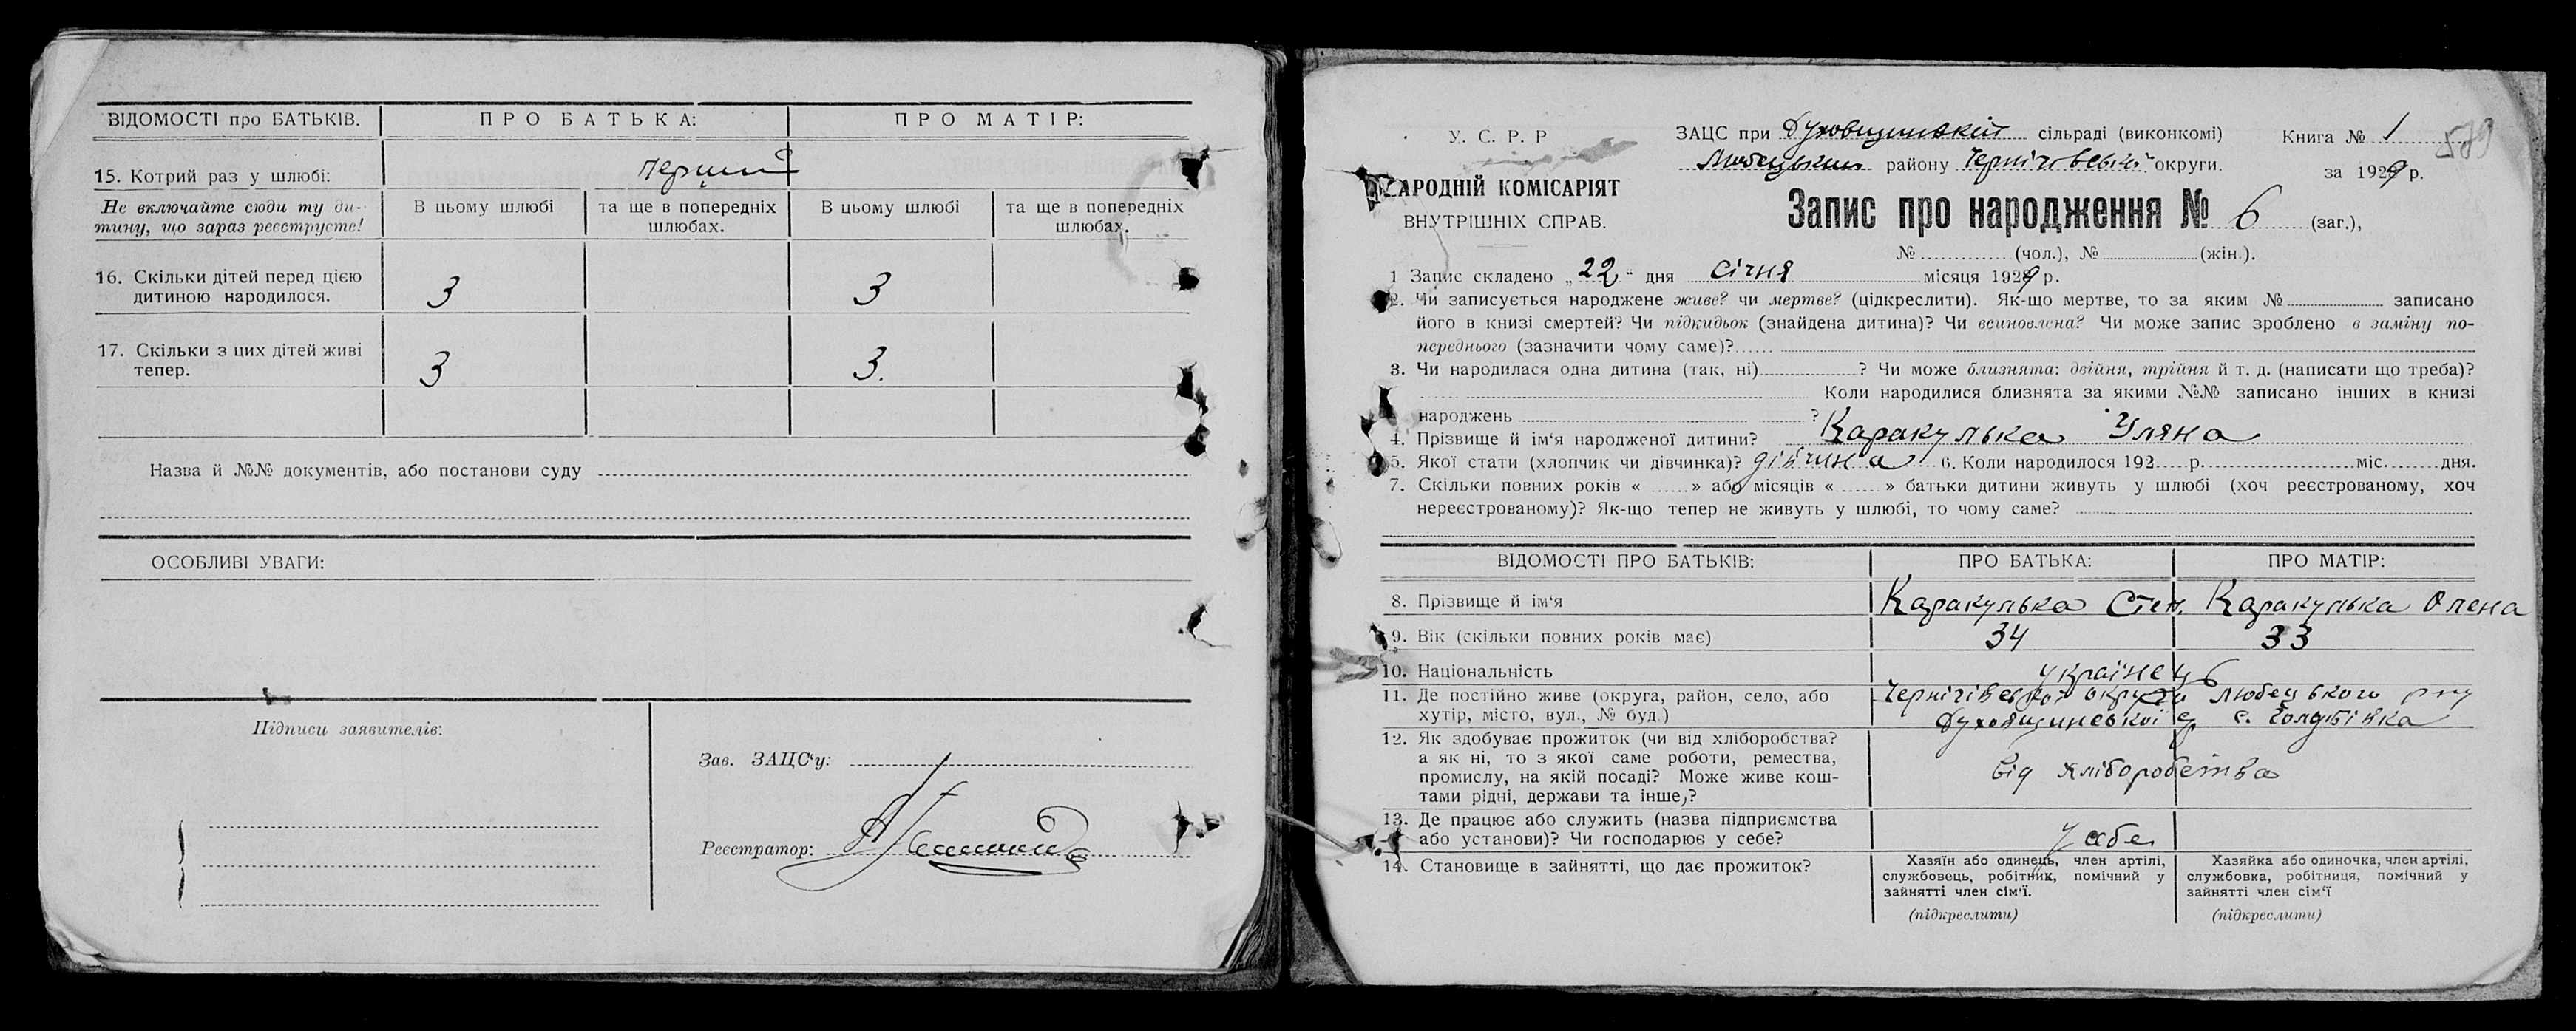 ВІДОМОСТІ про БАТЬКІВ. ПРО БАТЬКА: ПРО МАТІР:
15. Котрий раз у шлюбі: перший
Не включайте сюди ту ди- В цьому шлюбі та ще в попередніх В цьому шлюбі та ще в попередніх
тину, що зараз реєструєте! шлюбах. шлюбах.
16. Скільки дітей перед цією
дитиною народилося. 3 3
17. Скільки з цих дітей живі
тепер. 3 3.
Назва й №№ документів, або постанови суду
ОСОБЛИВІ УВАГИ:
Підписи заявителів:
Зав. ЗАЦС'у:
Реєстратор:
У. С. Р. Р ЗАЦС при Духовщинській сільраді (виконкомі) Книга № 1 589
Любецький району Чернігівської округи. за 1929 р.
НАРОДНІЙ КОМІСАРІЯТ
ВНУТРІШНІХ СПРАВ.
Запис про народження № 6 (заг.),
№ (чол.), № (жін.).
1 Запис складено „22" дня січня місяця 1929 р.
2. Чи записується народжене живе? чи мертве? (підкреслити). Як-що мертве, то за яким № записано
його в книзі смертей? Чи підкидьок (знайдена дитина)? Чи всиновлена? Чи може запис зроблено в заміну по-
переднього (зазначити чому саме)?
3. Чи народилася одна дитина (так, ні) ? Чи може близнята: двійня, трійня й т. д. (написати що треба)?
Коли народилися близнята за якими №№ записано інших в книзі
народжень ?
4. Прізвище й ім'я народженої дитини? Каракулька Уляна
5. Якої стати (хлопчик чи дівчинка)? дівчина 6. Коли народилося 192 р. міс. дня.
7. Скільки повних років « » або місяців « » батьки дитини живуть у шлюбі (хоч реєстрованому, хоч
нереєстрованому)? Як-що тепер не живуть у шлюбі, то чому саме?
ВІДОМОСТІ ПРО БАТЬКІВ: ПРО БАТЬКА: ПРО МАТІР:
8. Прізвище й ім'я Каракулька Степ. Каракулька Олена
9. Вік (скільки повних років має) 34 33
10. Національність українець
11. Де постійно живе (округа, район, село, або Чернігівської округи Любецького р-ну
хутір, місто, вул., № буд.) Духовщинської с.
12. Як здобуває прожиток (чи від хліборобства?
а як ні, то з якої саме роботи, ремества,
промислу, на якій посаді? Може живе кош-
тами рідні, держави та інше,? від хліборобства
13. Де працює або служить (назва підприємства
або установи)? Чи господарює у себе? у себе
14. Становище в зайнятті, що дає прожиток? Хазяїн або одинець, член артілі, Хазяйка або одиночка, член артілі,
службовець, робітник, помічний у службовка, робітниця, помічний у
зайнятті член сім'ї. зайнятті член сім'ї
(підкреслити) (підкреслити)